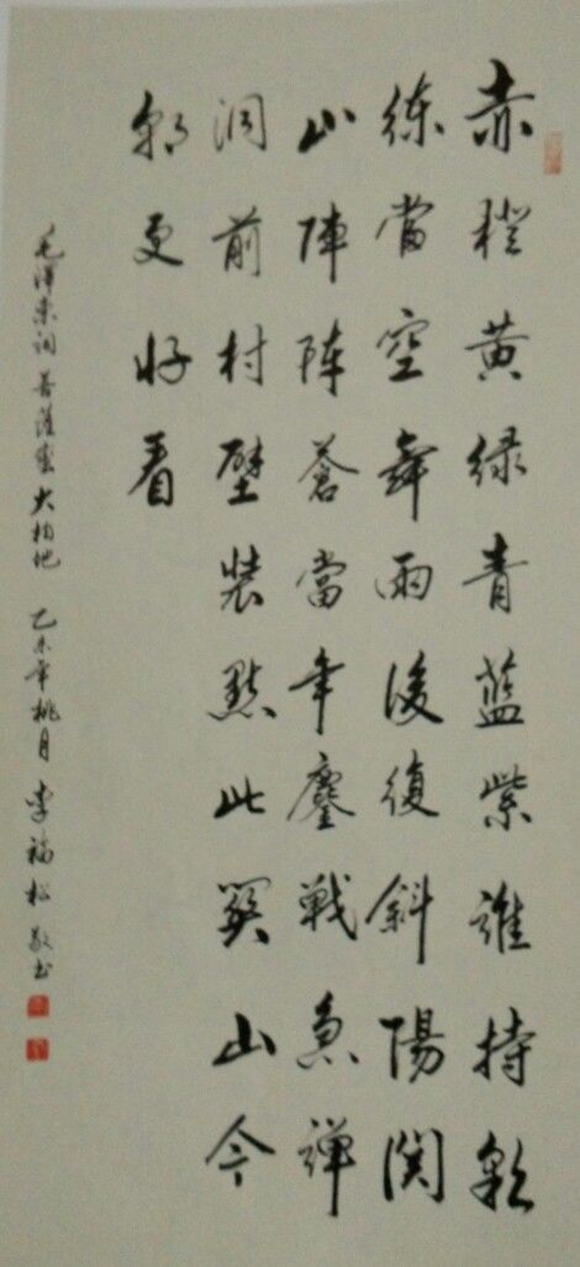 赤橙黄绿青蓝紫誰持彩
练當空舞雨後復斜陽関
山陣阵蒼當年鏖戰急弹
洞前村壁装點此関山今
朝更好看
毛泽东词菩萨蛮大柏地 乙未年桃月 李福松敬书